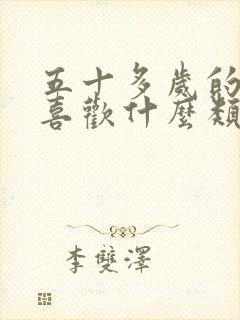 五十多歲的
喜歡什麼類
李雙澤